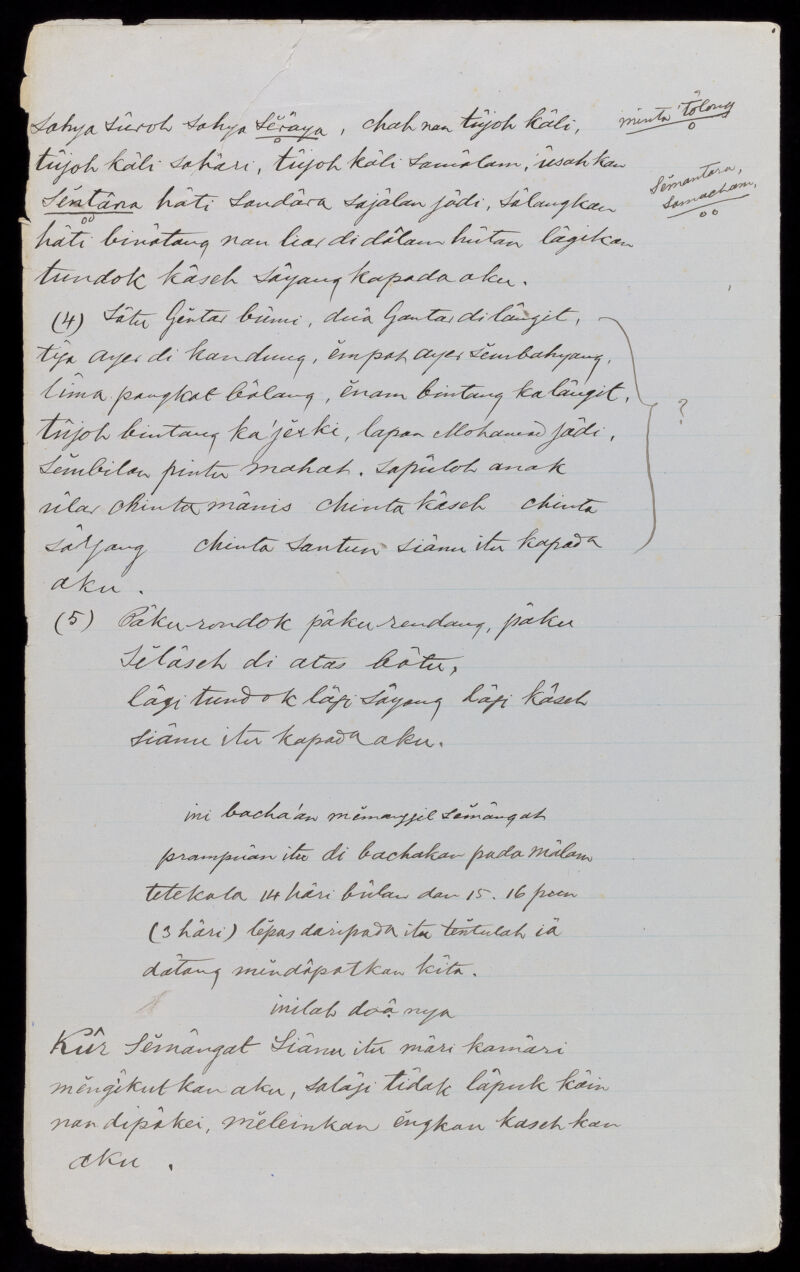 sahya sûroh sahya sĕrâya, chah nan tûjoh kâli,
minta tôlong
tûjoh kâli sahâri, tûjoh kâli samâlam, ûsah kan
sĕntâra hâti saudâra sajâlan jâdi, sâlangkan
Sĕmantara,
samacham.
hâti binâtang nan liar di dâlam hûtan lâgikan
tundok kâseh sâyang kapada aku.
(4) Sâtu Gĕntar bûmi, dûa Gantar di lângit,
tîga ayer di kandung, ĕmpat ayer sĕmbahyang,
lîma pangkat bâlang, ĕnam bintang ka lângit,
?
tûjoh bintang ka'jĕrki, lapan Mohamad jâdi,
sĕmbilan pintu mahat. sapûloh anak
ûlar chinta mânis chinta kâseh chinta
sâyang chinta santun siânu itu kapada
aku.
(5) Pâku-rondok pâku-rendang, pâku
Sĕlâseh di atas bâtu,
lâgi tundok lâgi sâyang lâgi kâseh
siânu itu kapada aku.
ini bacha'an mĕmanggil sĕmângat
prampûan itu di bachakan pada mâlam
tetekala 14 hâri bûlan dan 15. 16 pun
(3 hâri) lĕpas daripada itu tĕntulah iâ
dâtang mĕndâpatkan kîta.
inilah doâ nya
Kûr Sĕmângat Siânu itu mâri kamâri
mĕngîkut kan aku, salâgi tîdak lâpuk kâin
nan dipâkei, mĕleinkan ĕngkau kaseh kan
aku.